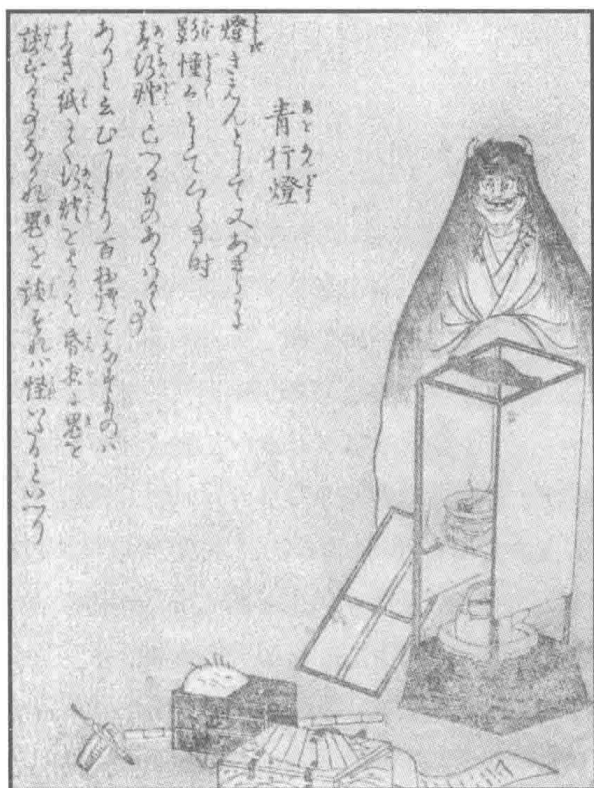 青行燈
燈きえんとして又あきらかに
影憧々としてくらき時
青行燈といへるものあらはるゝ事
ありと云むかしより百物語をなすものハ
青き紙にて行燈をはる也昏夜に鬼を
談ずる事なかれ鬼を談ずれハ怪いたるといへり